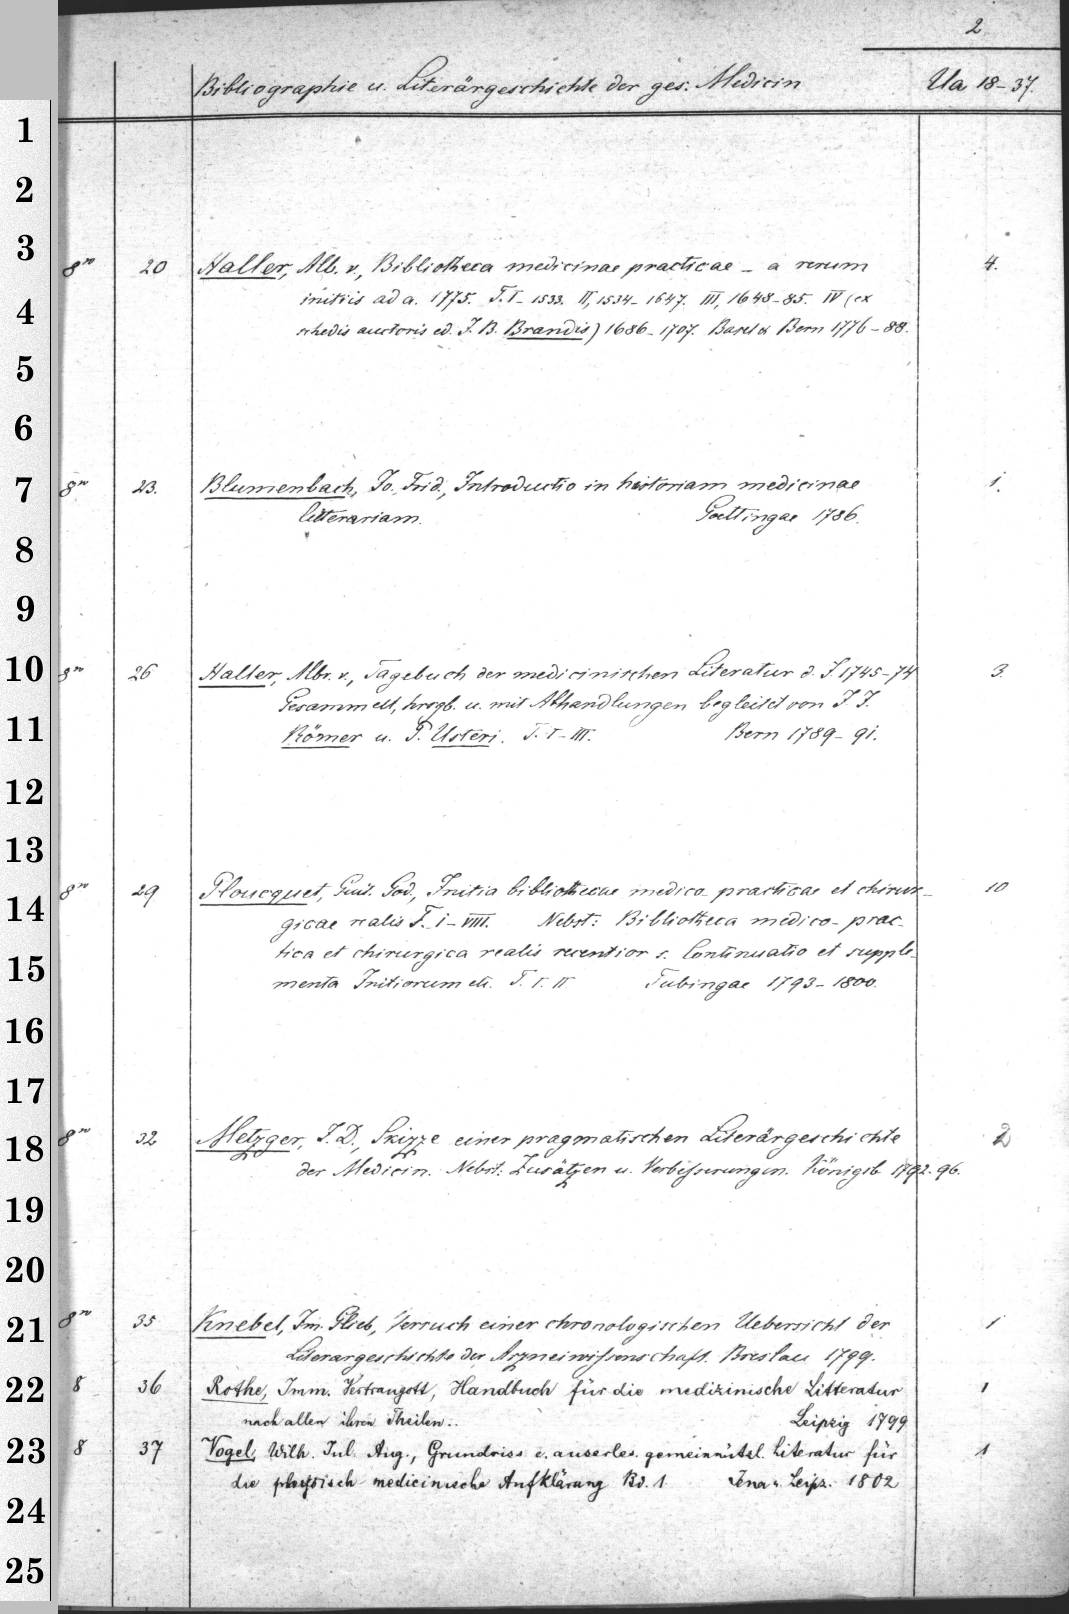 2
Bibliographie u. Literärgeschichte der ges. Medicin Ua 18-37.
8vo 20 Haller, Alb. v., Bibliotheca medicinae practicae - a rerum 4.
initiis ad a. 1775. T. I - 1533. II, 1534-1647. III, 1648-85. IV (ex
schedis auctoris ed. J. B. Brandis) 1686-1707. Basel & Bern 1776-88.
8vo 23. Blumenbach, Jo. Frid., Introductio in historiam medicinae 1.
litterariam. Goettingae 1786.
8vo 26 Haller, Albr. v., Tagebuch der medicinischen Literatur d. J. 1745-74 3.
Gesammelt, hrsgb. u. mit Abhandlungen begleitet von J. J.
Römer u. P. Usteri. T. I-III. Bern 1789-91.
8vo 29 Ploucquet, Guil. God., Initia bibliothecae medico-practicae et chirur- 10
gicae realis T. I-VIII. Nebst: Bibliotheca medico-prac-
tica et chirurgica realis recentior s. Continuatio et supple-
menta Initiorum etc. T. I. II Tubingae 1793-1800.
8vo 32 Metzger, J. D., Skizze einer pragmatischen Literärgeschichte 2
der Medicin. Nebst: Zusätzen u. Verbesserungen. Königsb. 1792.96.
8vo 35 Knebel, Im. Glieb, Versuch einer chronologischen Uebersicht der 1
Literargeschichte der Arzneiwissenschaft. Breslau 1799.
8 36 Rothe, Imm. Vertraugott, Handbuch für die medizinische Litteratur 1
nach allen ihren Theilen.. Leipzig 1799
8 37 Vogel, Wilh. Jul. Aug., Grundriss e. auserles. gemeinnützl. Literatur für 1
die physisch medicinische Aufklärung Bd. 1. Jena u. Leipz. 1802
1
2
3
4
5
6
7
8
9
10
11
12
13
14
15
16
17
18
19
20
21
22
23
24
25